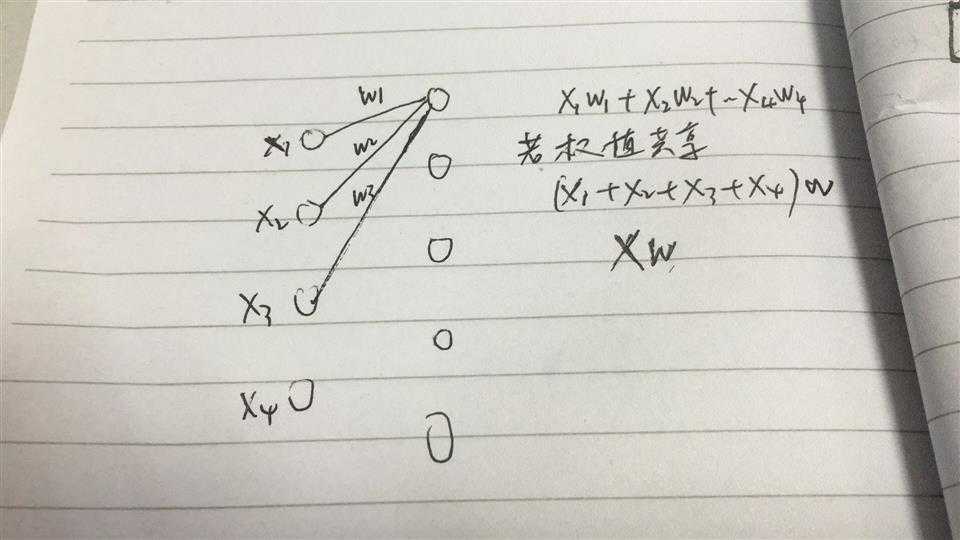 w1
x1
w2
x2
w3
x3
x4
x1w1+x2w2+~x4w4
若权值共享
(x1+x2+x3+x4)w
xw